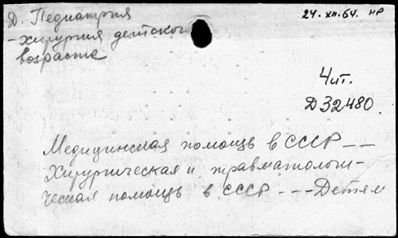 Д. Педиатрия
24.XII.64. НР
-хирургия детского
возраста
4ит.
Д32480.
Медицинская помощь в СССР --
Хирургическая и травматологи-
ческая помощь в СССР --- Детям